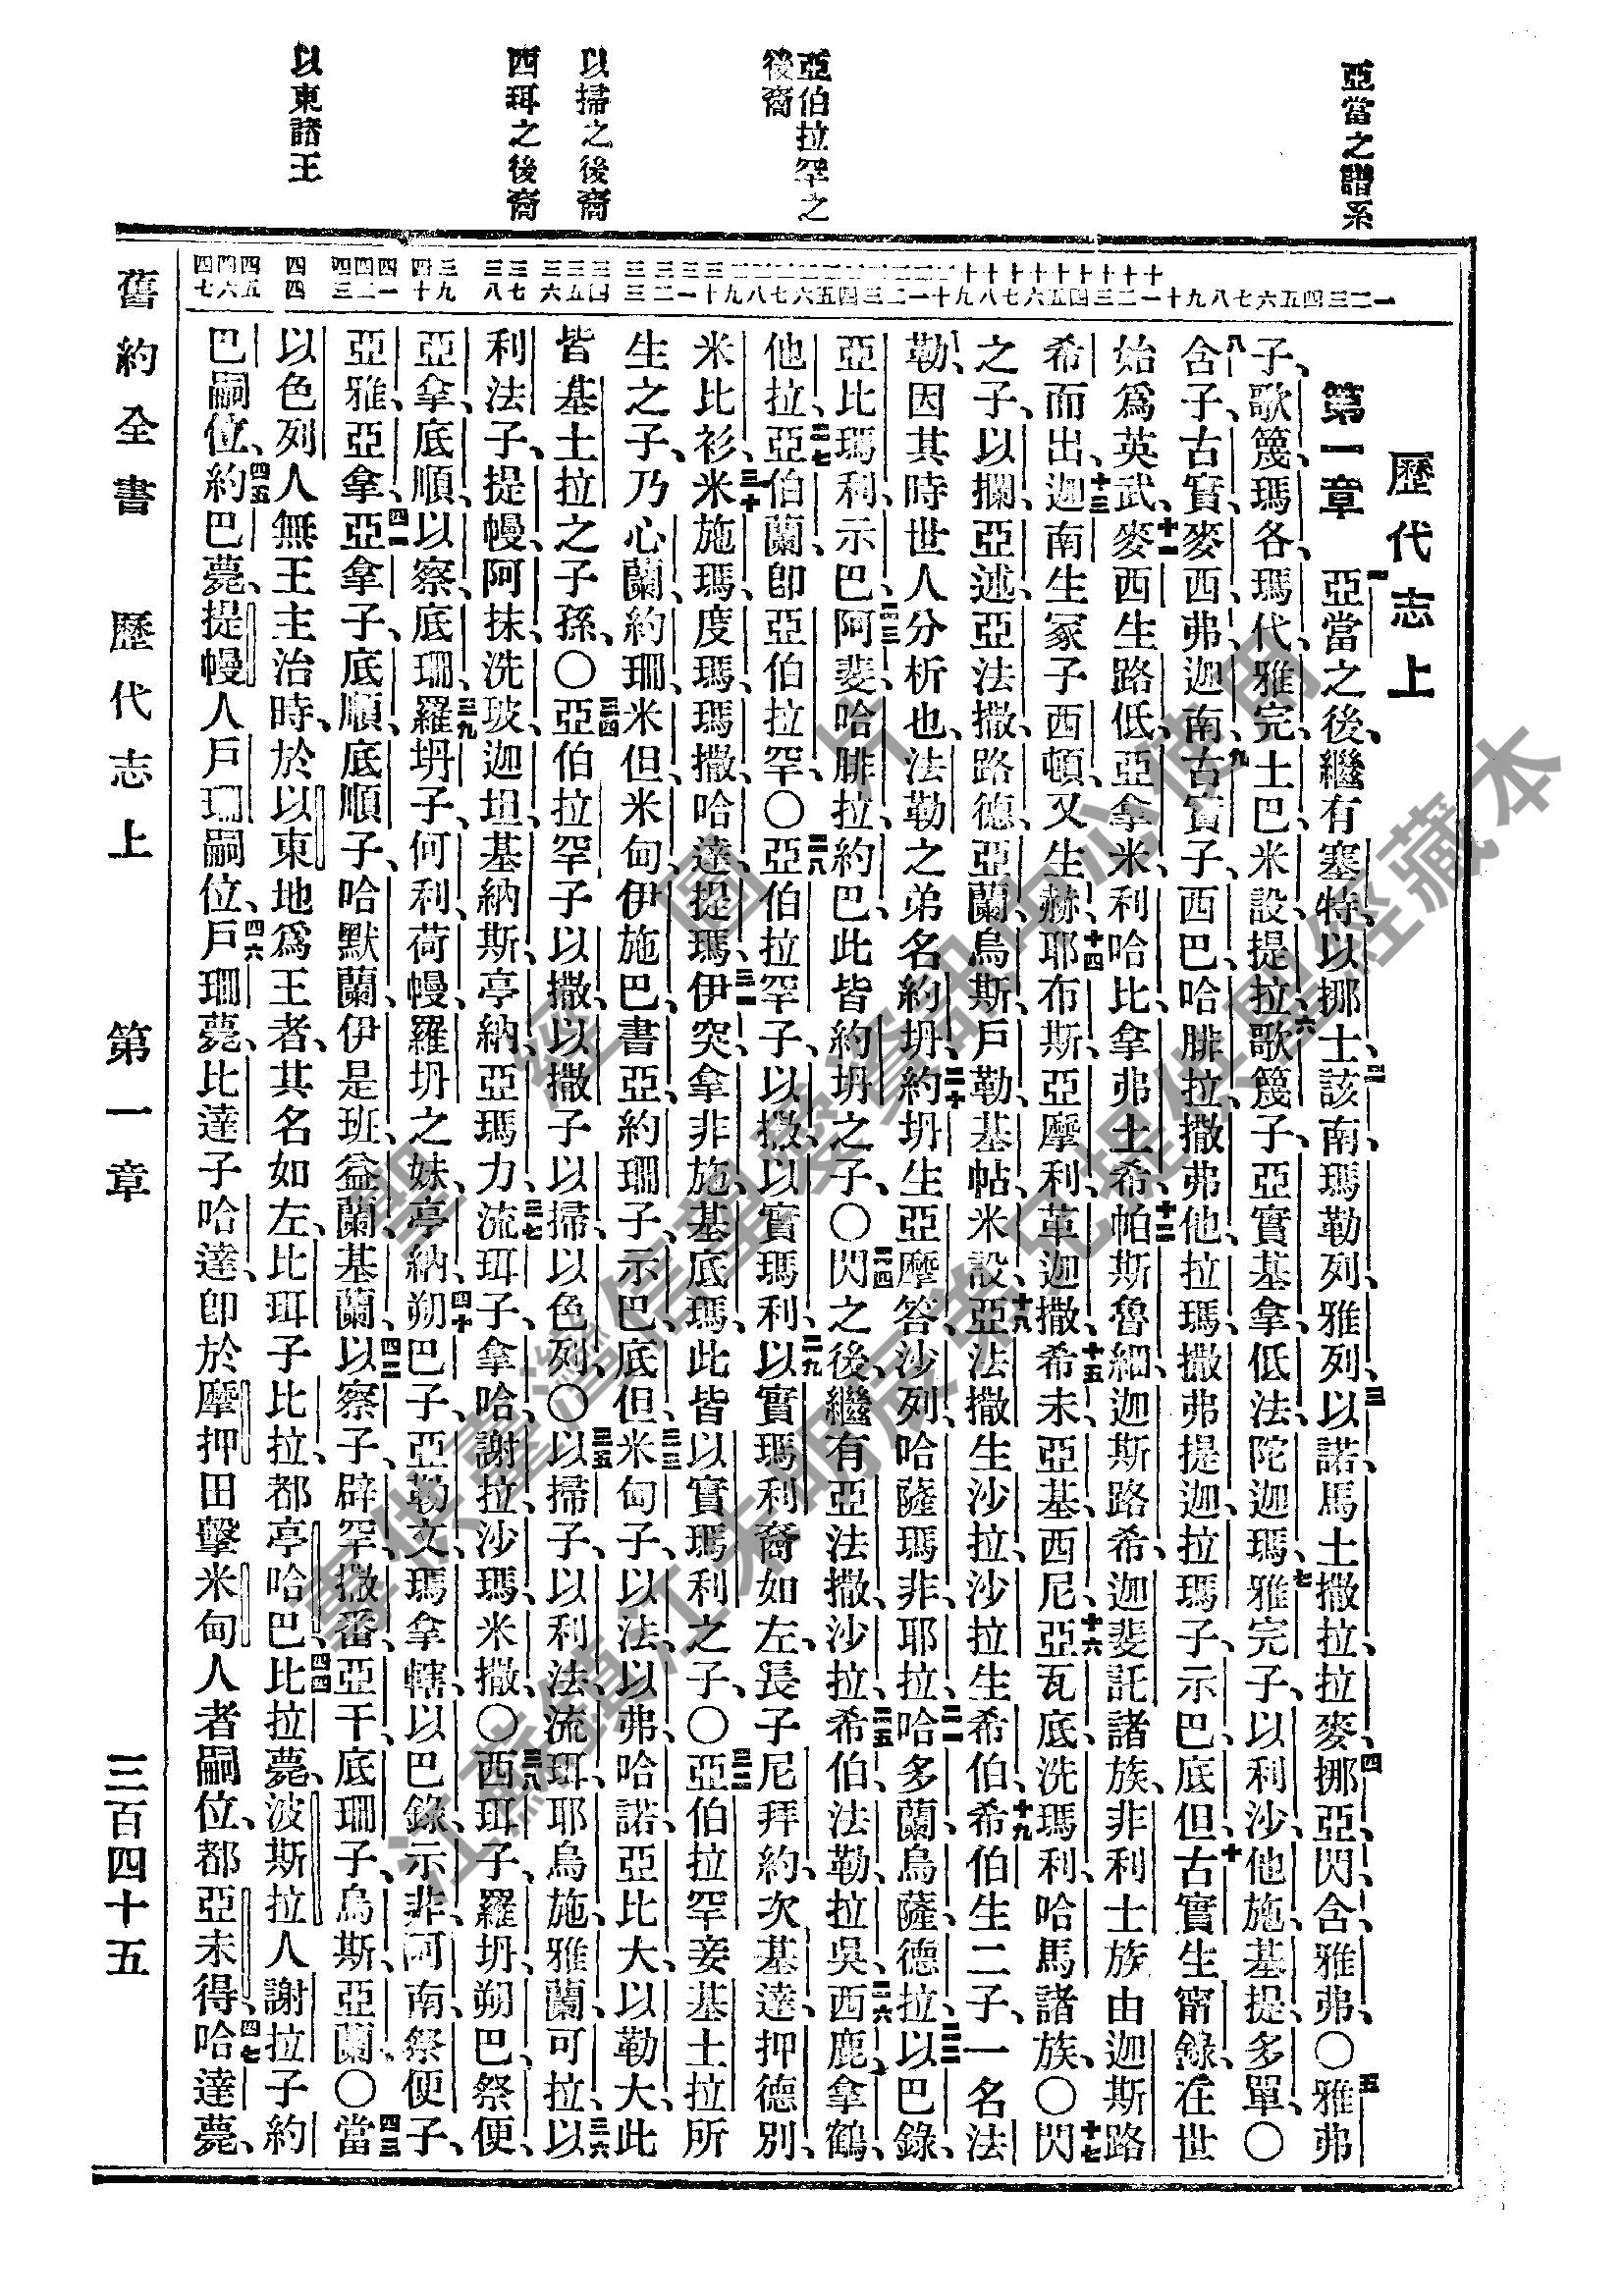 亞當之譜系
亞伯拉罕之
後裔
以掃之後裔
西珥之後裔
以東諸王
歷代志上
第一章　一亞當之後、繼有塞特、以挪士、二該南、瑪勒列、雅列、三以諾、馬土撒拉、拉麥、四挪亞、閃、含、雅弗、〇五雅弗
子、歌篾、瑪各、瑪代、雅完、土巴、米設、提拉、六歌篾子、亞實基拿、低法、陀迦瑪、七雅完子、以利沙、他施、基提、多單、〇
八含子、古實、麥西、弗、迦南、九古實子、西巴、哈腓拉、撒弗他、拉瑪、撒弗提迦、拉瑪子、示巴、底但、十古實生甯錄、在世
始爲英武、十一麥西生路低、亞拿米、利哈比、拿弗土希、十二帕斯魯細、迦斯路希、迦斐託諸族、非利士族由迦斯路
希而出、十三迦南生冢子西頓、又生赫、十四耶布斯、亞摩利、革迦撒、十五希未、亞基、西尼、十六亞瓦底、洗瑪利、哈馬諸族、〇十七閃
之子、以攔、亞述、亞法撒、路德、亞蘭、烏斯、戶勒、基帖、米設、十八亞法撒生沙拉、沙拉生希伯、十九希伯生二子、一名法
勒、因其時世人分析也、法勒之弟名約坍、二十約坍生亞摩答、沙列、哈薩瑪非、耶拉、二一哈多蘭、烏薩、德拉、二二以巴錄、
亞比瑪利、示巴、二三阿斐、哈腓拉、約巴、此皆約坍之子、〇二四閃之後、繼有亞法撒、沙拉、二五希伯、法勒、拉吳、二六西鹿、拿鶴、
他拉、二七亞伯蘭、卽亞伯拉罕、〇二八亞伯拉罕子、以撒、以實瑪利、二九以實瑪利裔如左、長子尼拜約、次基達、押德別、
米比衫、三十米施瑪、度瑪、瑪撒、哈達、提瑪、三一伊突、拿非施、基底瑪、此皆以實瑪利之子、〇三二亞伯拉罕妾基土拉所
生之子、乃心蘭、約珊、米但、米甸、伊施巴、書亞、約珊子、示巴、底但、三三米甸子、以法、以弗、哈諾、亞比大、以勒大、此
皆基土拉之子孫、〇三四亞伯拉罕子以撒、以撒子以掃、以色列、〇三五以掃子、以利法、流珥、耶烏施、雅蘭、可拉、三六以
利法子、提幔、阿抹、洗玻、迦坦、基納斯、亭納、亞瑪力、三七流珥子、拿哈、謝拉、沙瑪、米撒、〇三八西珥子、羅坍、朔巴、祭便、
亞拿、底順、以察、底珊、三九羅坍子、何利、荷幔、羅坍之妹、亭納、四十朔巴子、亞勒文、瑪拿轄、以巴錄、示非、阿南、祭便子、
亞雅、亞拿、四一亞拿子、底順、底順子、哈默蘭、伊是班、益蘭、基蘭、四二以察子、辟罕、撒番、亞干、底珊子、烏斯、亞蘭、〇四三當
以色列人無王主治時、於以東地爲王者、其名如左、比珥子比拉、都亭哈巴、四四比拉薨、波斯拉人謝拉子約
巴嗣位、四五約巴薨、提幔人戶珊嗣位、四六戶珊薨、比達子哈達、卽於摩押田擊米甸人者嗣位、都亞未得、四七哈達薨、
舊約全書　歷代志上　第一章　三百四十五